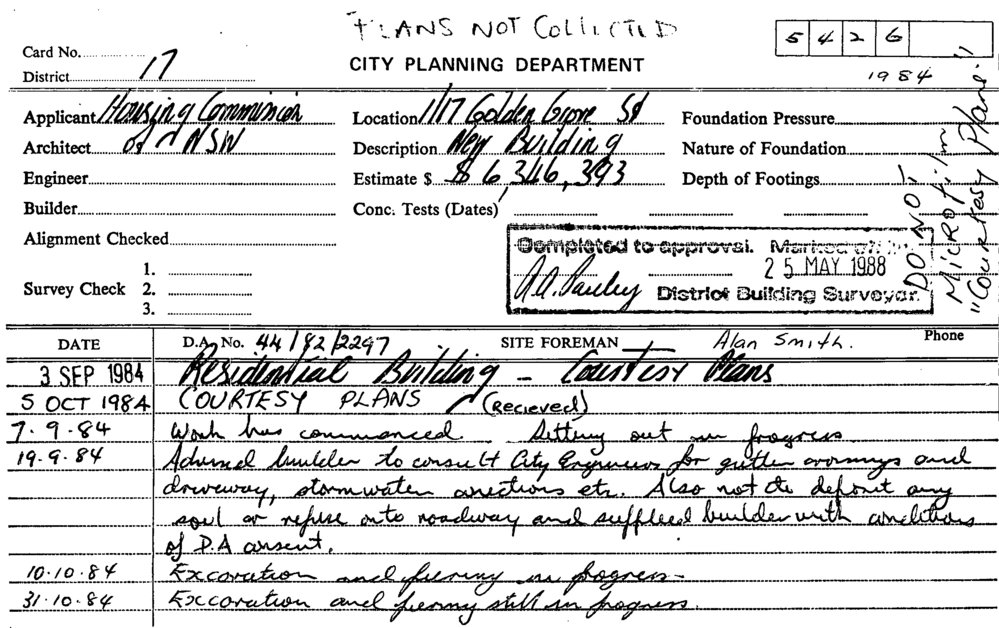 PLANS NOT COLLECTED
5 4 2 6
Card No.
District 17
CITY PLANNING DEPARTMENT
1984
Applicant Housing Commission
Location 1/17 Golden Grove St
Foundation Pressure
Architect of NSW
Description New Building
Nature of Foundation
Engineer
Estimate $ $ 6,346,393
Depth of Footings
Builder
Conc. Tests (Dates)
DO NOT
MICROFILM
"Courtesy Plans"
Alignment Checked
Completed to approval. Marked off
25 MAY 1988
District Building Surveyor.
Survey Check
1.
2.
3.
DATE D.A. No. 44/82/2297 SITE FOREMAN Alan Smith. Phone
3 SEP 1984 Residential Building - Courtesy Plans
5 OCT 1984 COURTESY PLANS (Recieved)
7.9.84 Work has commenced Setting out in progress
19.9.84 Advised builder to consult City Engineers for gutter crossings and
driveway, stormwater etc. Also not to deposit any
soil or refuse onto roadway and supplied builder with conditions
of D.A consent.
10.10.84 Excavation and piering in progress
31.10.84 Excavation and piering still in progress.